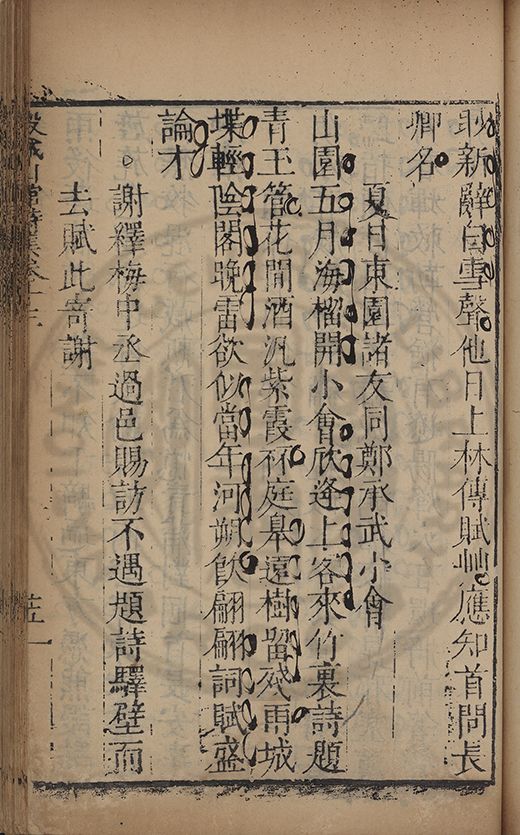 新辭白雪聲他日上林傳賦艸應知首問長
卿名
夏日東園諸友同鄭承武小會
山園五月海榴開小會欣逢上客來竹裏詩題
青玉管花間酒汎紫霞杯庭皐遠樹留殘雨城
堞輕陰閣晚雷欲似當年河朔飲翩翩詞賦盛
論才
謝釋梅中丞過邑賜訪不遇題詩驛壁而
去賦此寄謝